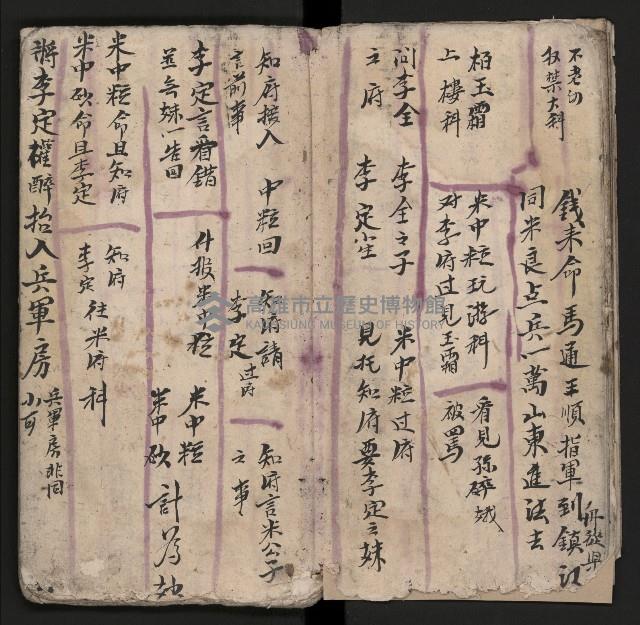 不老切
权禁大科
錢来命馬通王順指軍到鎮江
同米良点兵一萬山東進法去
柏玉霜
上樓科
米中粒玩游科
对李府过見玉霜
看見孫碎娥
被罵
问李全
之府
李全之子
李定坐
米中粒过府
見托知府要李定之妹
知府接入
言前事
中粒回
知府請
李定过府
知府言米公子
之事
李定言看錯
並無妹一告回
什报米中粒
米中粒
米中砍
計為
米中粒命且知府
米中砍命且李定
知府
李定
往米府科
將李定權醉抬入兵軍房
兵軍房非同
小可
高雄市立歷史博物館
KAOHSIUNG MUSEUM OF HISTORY